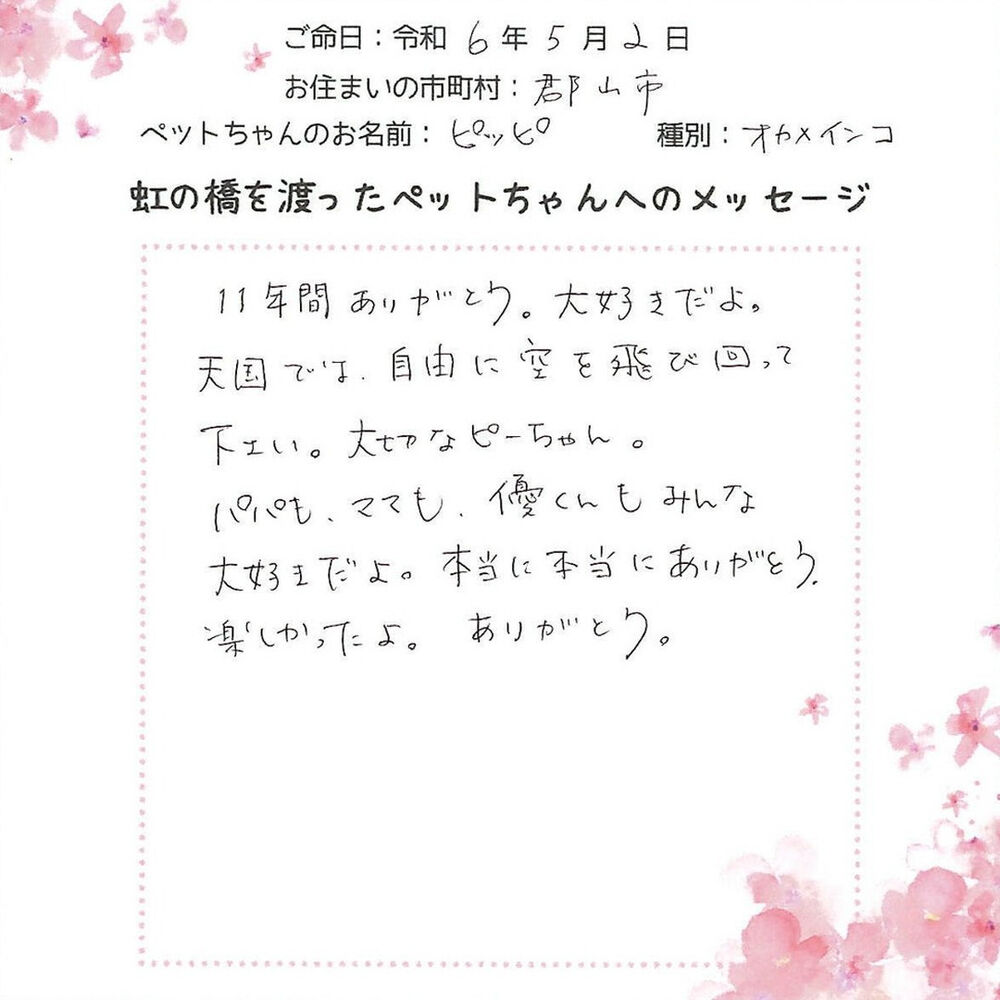 ご命日：令和 6 年 5 月 2 日
お住まいの市町村：郡山市
ペットちゃんのお名前：ピッピ 種別：オカメインコ
虹の橋を渡ったペットちゃんへのメッセージ
11年間ありがとう。大好きだよ。
天国では、自由に空を飛び回って
下さい。大切なピーちゃん。
パパも、ママも、優くんもみんな
大好きだよ。本当に本当にありがとう。
楽しかったよ。ありがとう。